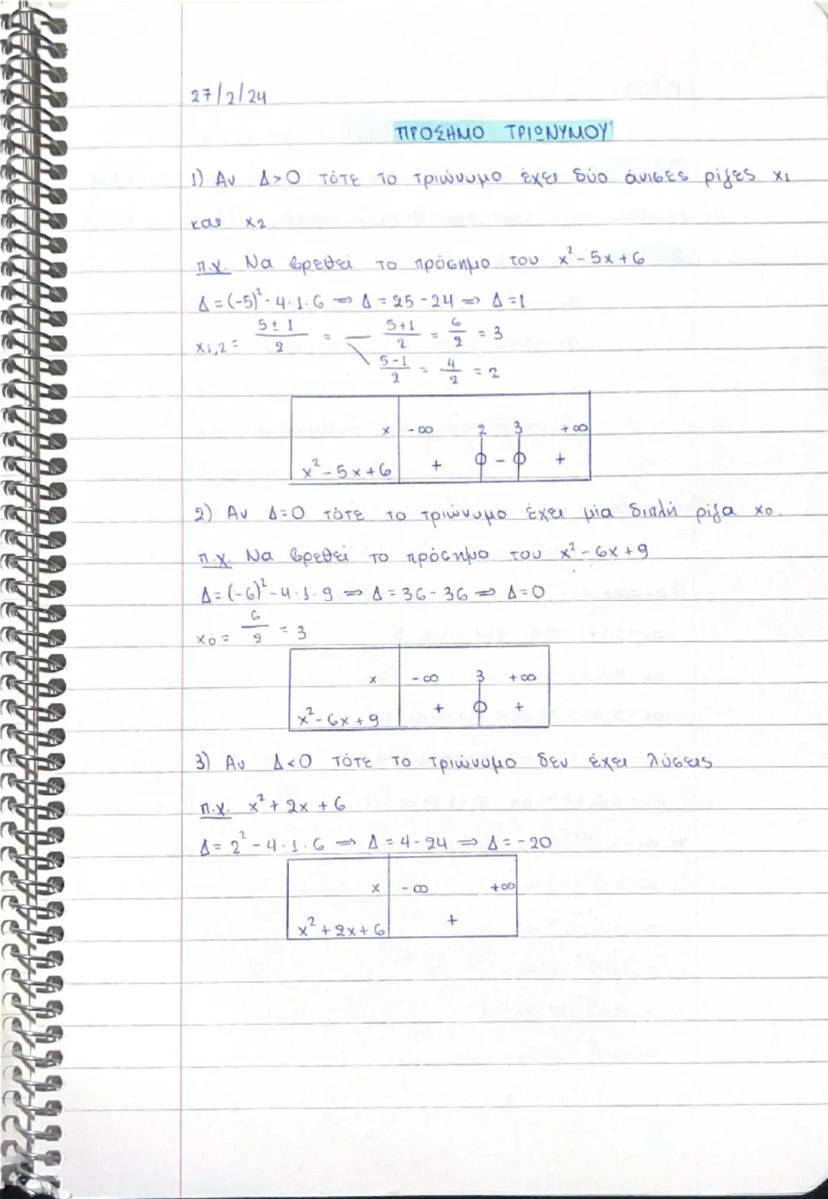 27/2/24
ΠΡΟΣΗΜΟ ΤΡΙΩΝΥΜΟΥ
1) Αν Δ>0 τότε το τριώνυμο έχει δύο άνισες ρίζες x₁
και x₂
π.χ. Να βρεθεί το πρόσημο του x²-5x+6
Δ=(-5)²-4·1·6 ⇒ Δ=25-24 ⇒ Δ=1
x₁,₂= 5±1/2 = 5+1/2 = 6/2 = 3
5-1/2 = 4/2 = 2
x -∞ 2 3 +∞
x²-5x+6 + 0 - 0 +
2) Αν Δ=0 τότε το τριώνυμο έχει μία διπλή ρίζα x₀.
π.χ. Να βρεθεί το πρόσημο του x²-6x+9
Δ=(-6)²-4·1·9 ⇒ Δ=36-36 ⇒ Δ=0
x₀= 6/2 = 3
x -∞ 3 +∞
x²-6x+9 + 0 +
3) Αν Δ<0 τότε το τριώνυμο δεν έχει λύσεις
π.χ. x²+2x+6
Δ=2²-4·1·6 ⇒ Δ=4-24 ⇒ Δ=-20
x -∞ +∞
x²+2x+6 +